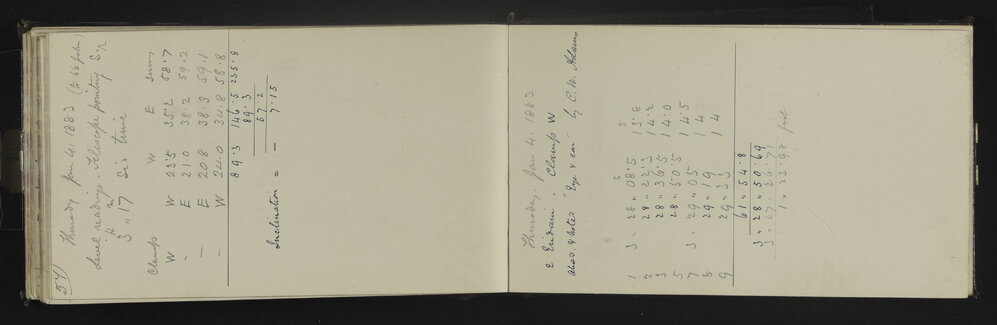 54)
Thursday Jan 4. 1883
Level readings. Telescope pointing S.
h m
3 " 17 Sid time
Clamp W E sum
W W 23.5 35.2 58.7
- E 21.0 38.2 59.2
- E 20.8 38.3 59.1
- W 24.0 34.8 58.8
89.3 146.5 235.8
89.3
57.2
Inclination = - 7.15
Thursday. Jan 4. 1883
ε Eridani. Clamp W
Obsd. & Noted Eye & ear by C.W. Adams
s s
1 3 " 28 " 08.5 13.8
2 28 " 22.3 14.2
3 28 " 36.5 14.0
5 28 " 50.5 14.5
7 3 " 29 " 05 14
8 29 " 19 14
9 29 " 33
61 " 54.8
3 " 28 " 50.69
3 " 27 " 26.71
1 " 23.98 fast